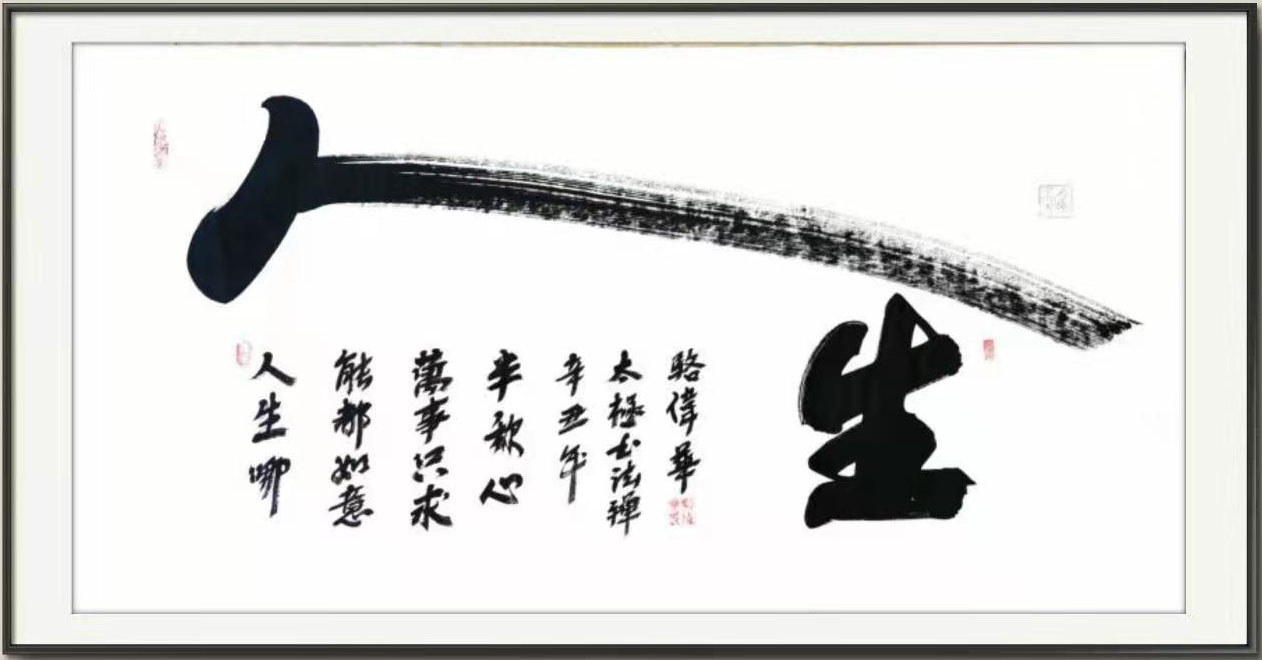 人生
人生哪
能都如意
萬事只求
半歡心
辛丑年
太極书法禅
駱偉華